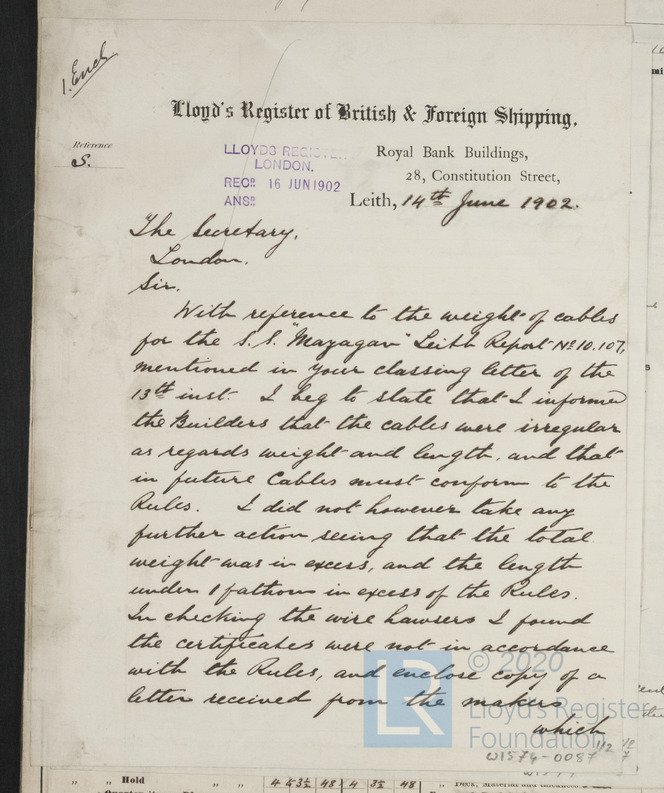 1. Encl
Lloyd's Register of British & Foreign Shipping.
Reference
S.
LLOYDS REGISTER
LONDON.
RECD 16 JUN 1902
ANSD
Royal Bank Buildings,
28, Constitution Street,
Leith, 14th June 1902.
The Secretary,
London.
Sir.
With reference to the weight of cables
for the S.S. "Mazagan" Leith Report No 10,107,
mentioned in your classing letter of the
13th inst. I beg to state that I informed
the Builders that the cables were irregular
as regards weight and length, and that
in future Cables must conform to the
Rules. I did not however take any
further action seeing that the total
weight was in excess, and the length
under 1 fathom in excess of the Rules.
In checking the wire hawsers I found
the certificates were not in accordance
with the Rules, and enclose copy of a
letter received from the makers
which
© 2020
LR
Lloyd's Register
Foundation
W1574-0087
" " Hold " " 4 48 4 48